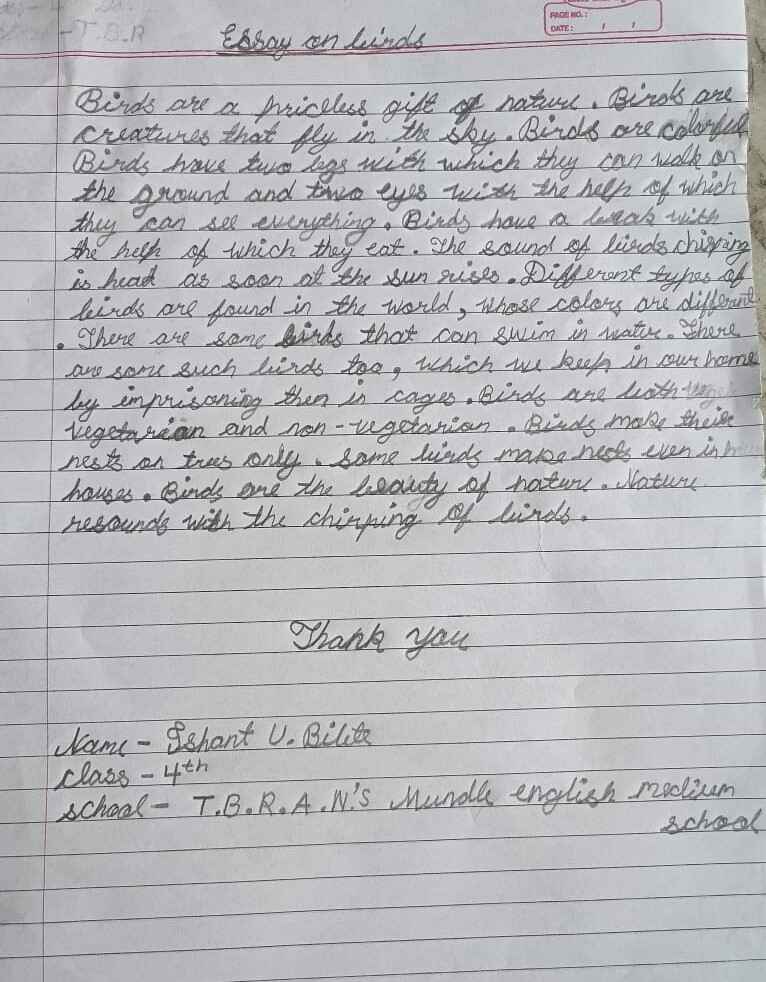 T.B.R
PAGE NO.:
DATE: / /
Essay on birds
Birds are a priceless gift of nature. Birds are
creatures that fly in the sky. Birds are colorful
Birds have two legs with which they can walk on
the ground and two eyes with the help of which
they can see everything. Birds have a beak with
the help of which they eat. The sound of birds chirping
is heat as soon at the sun rises. Different types of
birds are found in the world, whose colors are different
. There are some birds that can swim in water. There
are some such birds too, which we keep in our home
by imprisoning then in cages. Birds are both
vegetarian and non-vegetarian. Birds make their
nests on trees only. Some birds make nests even in
houses. Birds are the beauty of nature. Nature
resounds with the chirping of birds.
Thank you
Name - Ishant U. Bilite
class - 4th
school - T.B.R.A.N.'s Mundle english medium
school